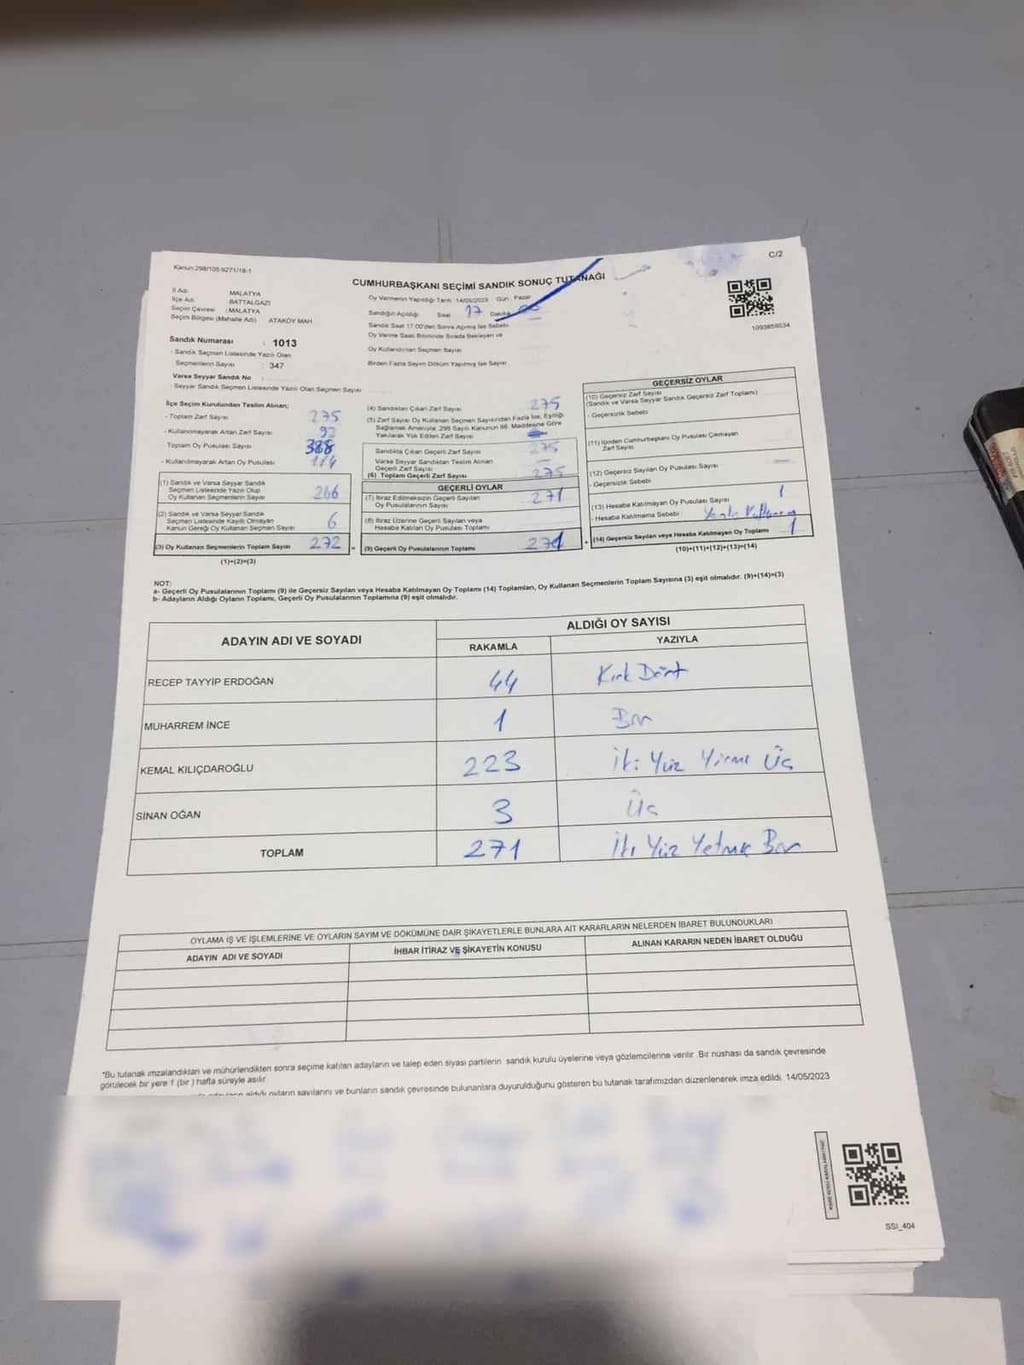 Kanun:298/105 6271/18-1
C/2
CUMHURBAŞKANI SEÇİMİ SANDIK SONUÇ TUTANAĞI
İl Adı : MALATYA
İlçe Adı : BATTALGAZİ
Seçim Çevresi : MALATYA
Seçim Bölgesi (Mahalle Adı) : ATAKÖY MAH
Oy Vermenin Yapıldığı Tarih: 14/05/2023 Gün : Pazar
Sandığın Açıldığı Saat 17 Dakika 00
Sandık Saat 17:00'den Sonra Açılmış İse Sebebi
Oy Verme Saati Bitiminde Sırada Bekleyen ve
Oy Kullandırılan Seçmen Sayısı
Birden Fazla Sayım Döküm Yapılmış İse Sayısı
1093859534
Sandık Numarası : 1013
- Sandık Seçmen Listesinde Yazılı Olan
Seçmenlerin Sayısı : 347
Varsa Seyyar Sandık No :
- Seyyar Sandık Seçmen Listesinde Yazılı Olan Seçmen Sayısı
İlçe Seçim Kurulundan Teslim Alınan;
- Toplam Zarf Sayısı 275
- Kullanılmayarak Artan Zarf Sayısı
Toplam Oy Pusulası Sayısı 388
- Kullanılmayarak Artan Oy Pusulası
(1) Sandık ve Varsa Seyyar Sandık
Seçmen Listesinde Yazılı Olup
Oy Kullanan Seçmenlerin Sayısı 266
(2) Sandık ve Varsa Seyyar Sandık
Seçmen Listesinde Kayıtlı Olmayan
Kanun Gereği Oy Kullanan Seçmen Sayısı 6
(3) Oy Kullanan Seçmenlerin Toplam Sayısı 272
(1)+(2)=(3)
(4) Sandıktan Çıkan Zarf Sayısı 275
(5) Zarf Sayısı Oy Kullanan Seçmen Sayısından Fazla İse, Eşitliği
Sağlamak Amacıyla; 298 Sayılı Kanunun 98. Maddesine Göre
Yakılarak Yok Edilen Zarf Sayısı
Sandıkta Çıkan Geçerli Zarf Sayısı 275
Varsa Seyyar Sandıktan Teslim Alınan
Geçerli Zarf Sayısı —
(6) Toplam Geçerli Zarf Sayısı 275
GEÇERLİ OYLAR
(7) İtiraz Edilmeksizin Geçerli Sayılan
Oy Pusulalarının Sayısı 271
(8) İtiraz Üzerine Geçerli Sayılan veya
Hesaba Katılan Oy Pusulası Sayısı
(9) Geçerli Oy Pusulalarının Toplamı 271
GEÇERSİZ OYLAR
(10) Geçersiz Zarf Sayısı
(Sandık ve Varsa Seyyar Sandık Geçersiz Zarf Toplamı)
- Geçersizlik Sebebi
(11) İçinden Cumhurbaşkanı Oy Pusulası Çıkmayan
Zarf Sayısı
(12) Geçersiz Sayılan Oy Pusulası Sayısı —
- Geçersizlik Sebebi
(13) Hesaba Katılmayan Oy Pusulası Sayısı 1
- Hesaba Katılmama Sebebi :
(14) Geçersiz Sayılan veya Hesaba Katılmayan Oy Toplamı 1
(10)+(11)+(12)+(13)=(14)
NOT:
a- Geçerli Oy Pusulalarının Toplamı (9) ile Geçersiz Sayılan veya Hesaba Katılmayan Oy Toplamı (14) Toplamları, Oy Kullanan Seçmenlerin Toplam Sayısına (3) eşit olmalıdır. (9)+(14)=(3)
b- Adayların Aldığı Oyların Toplamı, Geçerli Oy Pusulalarının Toplamına (9) eşit olmalıdır.
ADAYIN ADI VE SOYADI
ALDIĞI OY SAYISI
RAKAMLA YAZIYLA
RECEP TAYYİP ERDOĞAN 44 Kırk Dört
MUHARREM İNCE 1 Bir
KEMAL KILIÇDAROĞLU 223 İki Yüz Yirmi Üç
SİNAN OĞAN 3 Üç
TOPLAM 271 İki Yüz Yetmiş Bir
OYLAMA İŞ VE İŞLEMLERİNE VE OYLARIN SAYIM VE DÖKÜMÜNE DAİR ŞİKAYETLERLE BUNLARA AİT KARARLARIN NELERDEN İBARET BULUNDUKLARI
ADAYIN ADI VE SOYADI İHBAR İTİRAZ VE ŞİKAYETİN KONUSU ALINAN KARARIN NEDEN İBARET OLDUĞU
*Bu tutanak imzalandıktan ve mühürlendikten sonra seçime katılan adayların ve talep eden siyasi partilerin sandık kurulu üyelerine veya gözlemcilerine verilir. Bir nüshası da sandık çevresinde
görülecek bir yere 1 (bir ) hafta süreyle asılır.
aldığı oyların sayılarını ve bunların sandık çevresinde bulunanlara duyurulduğunu gösteren bu tutanak tarafımızdan düzenlenerek imza edildi. 14/05/2023
SSI_404